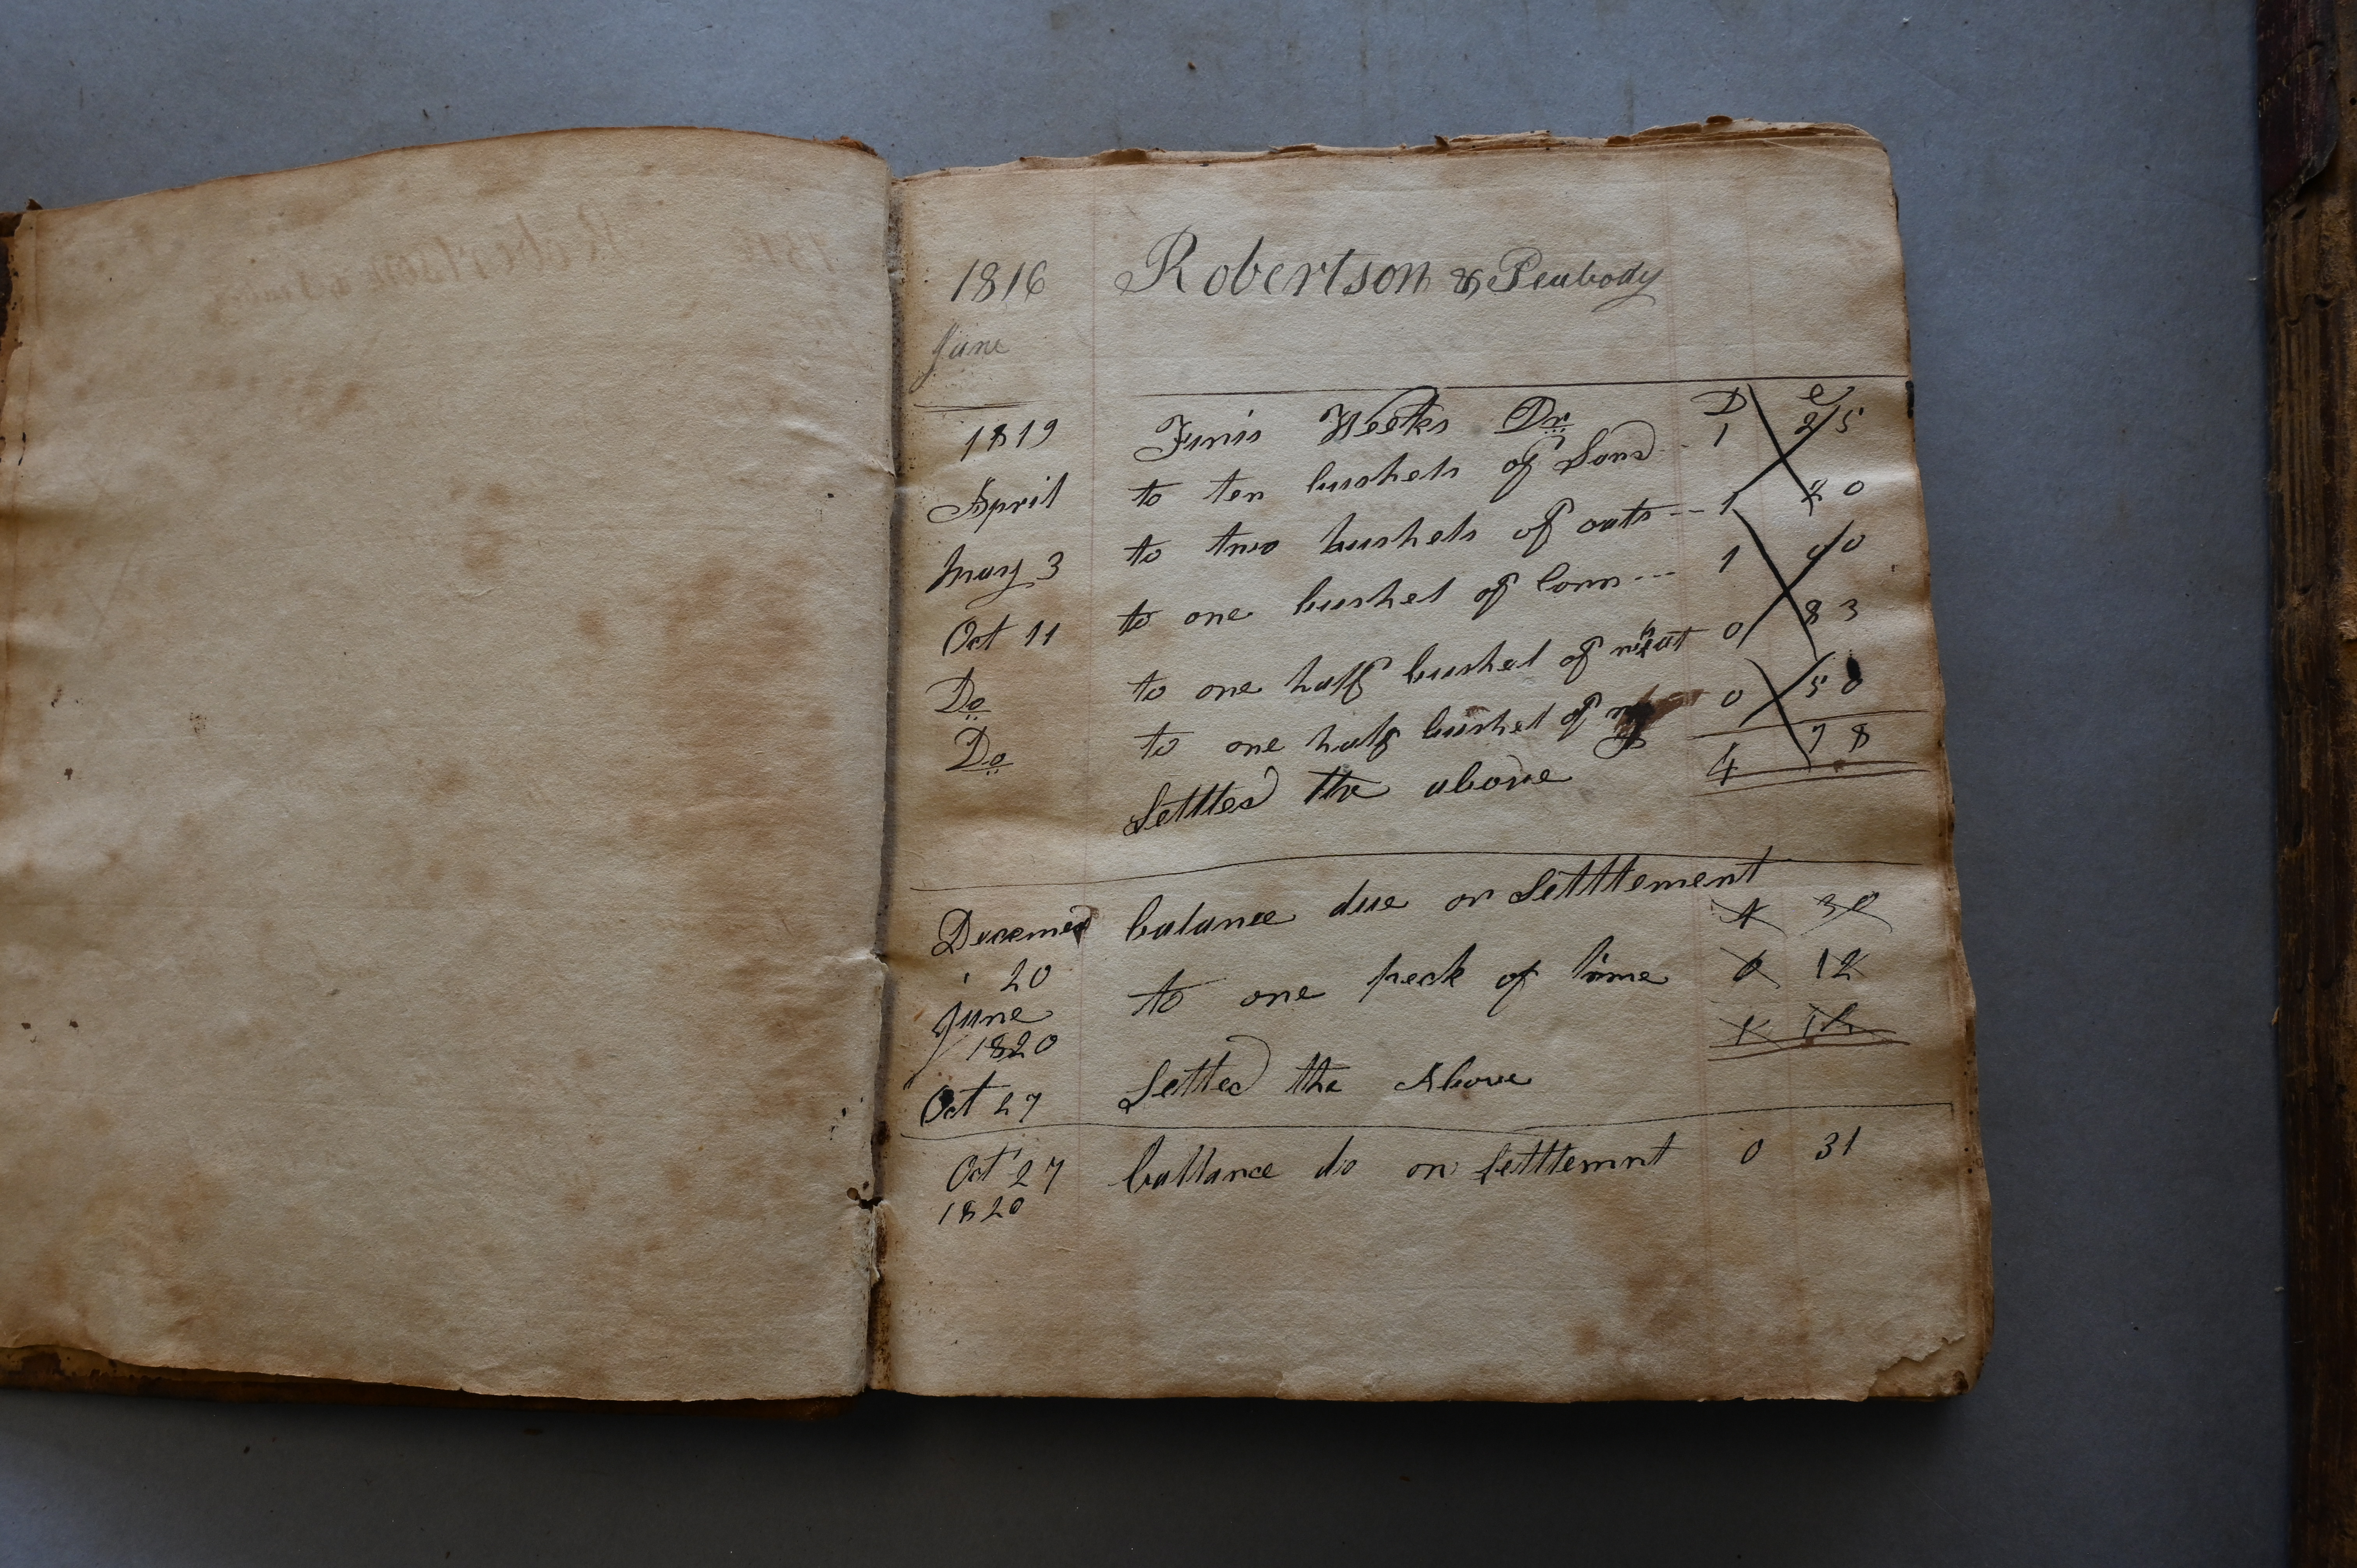 1816 Robertson & Peabody
June
1819 Weeks Dr D c
April to ten bushels of Sand 1 25
May 3 to two bushels of oats --- 1 20
Oct 11 to one bushel of Corn --- 1 00
Do to one half bushel of 0 83
Do to one half bushel of 0 50
Setttled the above 4 78
balance due on Setttlement 30
20
June to one peck of lime 0 12
1820
Oct 27 Settled the Above
Oct 27 ballance do on settlemnt 0 31
1820